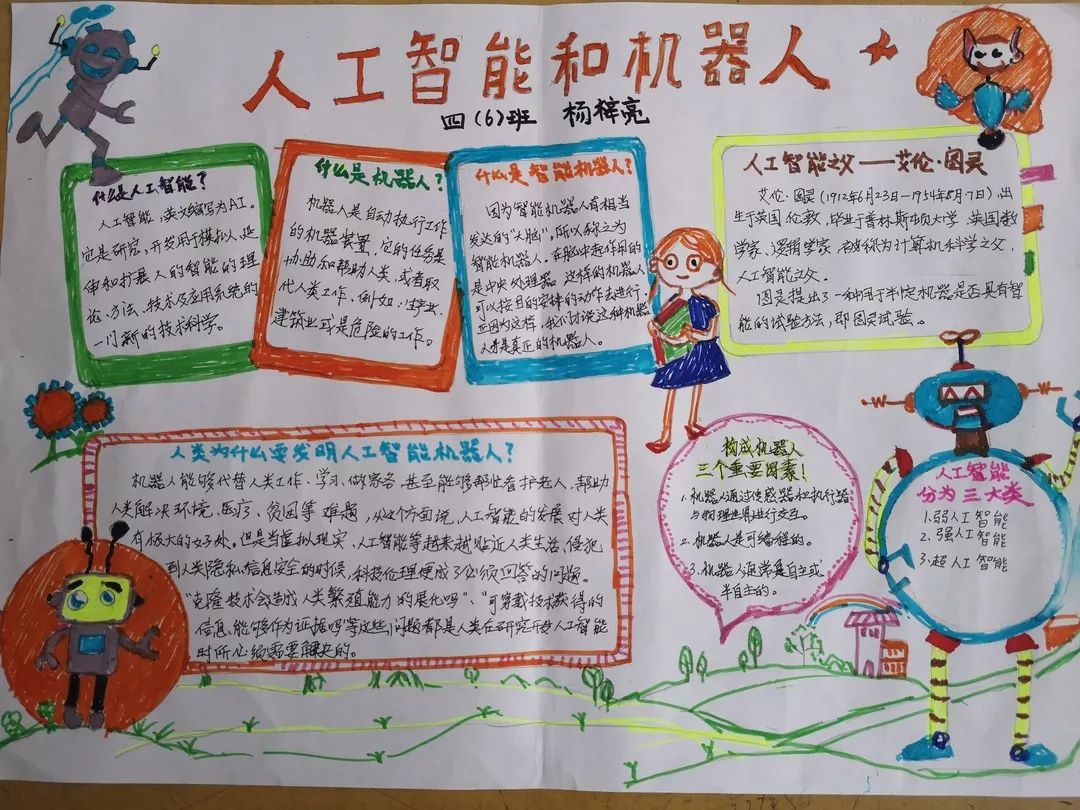 人工智能和机器人
四(6)班 杨梓亮
什么是人工智能？
人工智能，英文缩写为AI。
它是研究，开发用于模拟人、延
伸和扩展人的智能的理
论、方法、技术及应用系统的
一门新的技术科学。
什么是机器人？
机器人是自动执行工作
的机器装置，它的任务是
协助和帮助人类，或者取
代人类工作，例如：
建筑业或是危险的工作。
什么是智能机器人？
因为智能机器人有相当
发达的“大脑”。所以称之为
智能机器人。在脑中起作用的
是中央处理器 这样的机器人
可以按目的安排的动作去进行
正因为这样，我们才说这种机器
人才是真正的机器人。
人工智能之父——艾伦·图灵
艾伦·图灵(1912年6月23日-1954年6月7日)，出
生于英国伦敦，毕业于普林斯顿大学，英国数
学家、逻辑学家，被称为计算机科学之父，
人工智能之父。
图灵提出了一种用于判定机器是否具有智
能的试验方法，即图灵试验。
人类为什么要发明人工智能机器人？
机器人能够代替人类工作、学习、做家务，甚至能够帮忙看护老人，帮助
人类解决环境、医疗、贫困等难题，从这个方面说，人工智能的发展对人类
有极大的好处。但是当虚拟现实、人工智能等越来越贴近人类生活，侵犯
到人类隐私信息安全的时候，科技伦理便成了必须回答的问题。
“克隆技术会造成人类繁殖能力的退化吗”、“可穿戴技术获得的
信息，能够作为证据吗”等这些，问题都是人类在研究开发人工智能
时所必须需要解决的。
构成机器人
三个重要因素！
1.机器人通过传感器和执行器
与物理世界进行交互。
2.机器人是可编程的。
3.机器人通常是自主或
半自主的。
人工智能
分为三大类
1.弱人工智能
2.强人工智能
3.超人工智能